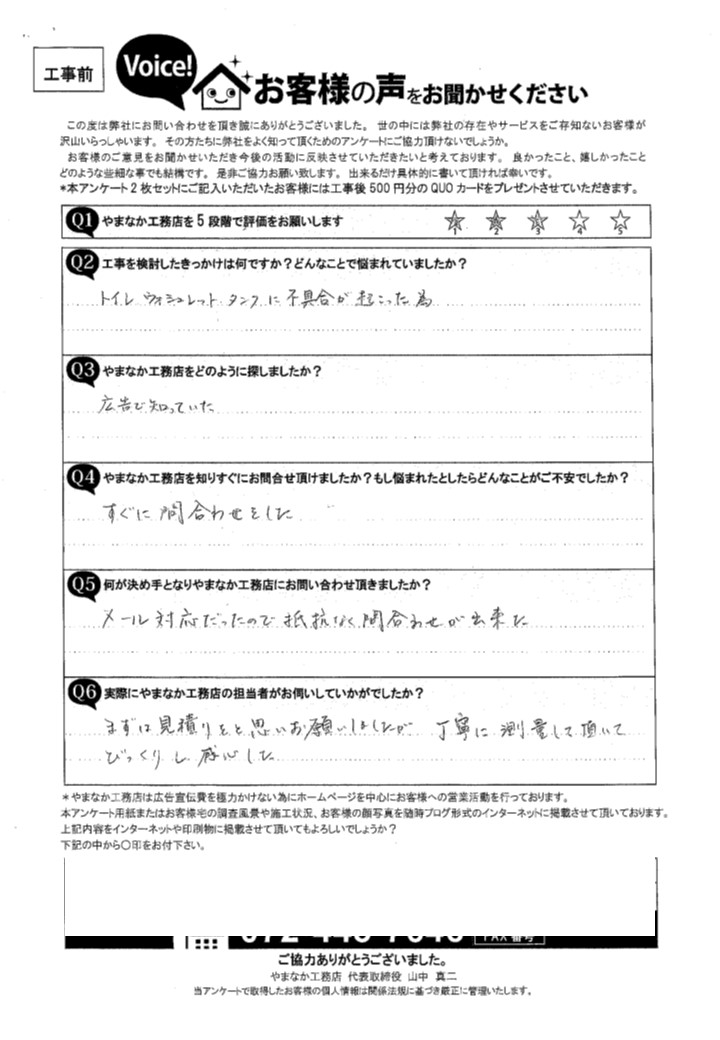 工事前
Voice!
お客様の声をお聞かせください
この度は弊社にお問い合わせを頂き誠にありがとうございました。 世の中には弊社の存在やサービスをご存知ないお客様が
沢山いらっしゃいます。 その方たちに弊社をよく知って頂くためのアンケートにご協力頂けないでしょうか。
お客様のご意見をお聞かせいただき今後の活動に反映させていただきたいと考えております。 良かったこと、嬉しかったこと
どのような些細な事でも結構です。 是非ご協力お願い致します。 出来るだけ具体的に書いて頂ければ幸いです。
*本アンケート2枚セットにご記入いただいたお客様には工事後500円分のQUOカードをプレゼントさせていただきます。
Q1 やまなか工務店を5段階で評価をお願いします 1 2 3 4 5
Q2 工事を検討したきっかけは何ですか?どんなことで悩まれていましたか?
トイレ ウォシュレット タンクに不具合が起こった為
Q3 やまなか工務店をどのように探しましたか?
広告で知っていた
Q4 やまなか工務店を知りすぐにお問合せ頂けましたか?もし悩まれたとしたらどんなことがご不安でしたか?
すぐに問合わせをした
Q5 何が決め手となりやまなか工務店にお問い合わせ頂きましたか?
メール対応だったので抵抗なく問合わせが出来た
Q6 実際にやまなか工務店の担当者がお伺いしていかがでしたか?
まずは見積りをと思いお願いしましたが 丁寧に測量して頂いて
びっくりし感心した
*やまなか工務店は広告宣伝費を極力かけない為にホームページを中心にお客様への営業活動を行っております。
本アンケート用紙またはお客様宅の調査風景や施工状況、お客様の顔写真を随時ブログ形式のインターネットに掲載させて頂いております。
上記内容をインターネットや印刷物に掲載させて頂いてもよろしいでしょうか?
下記の中から〇印をお付下さい。
FAX番号
ご協力ありがとうございました。
やまなか工務店 代表取締役 山中 真二
当アンケートで取得したお客様の個人情報は関係法規に基づき厳正に管理いたします。